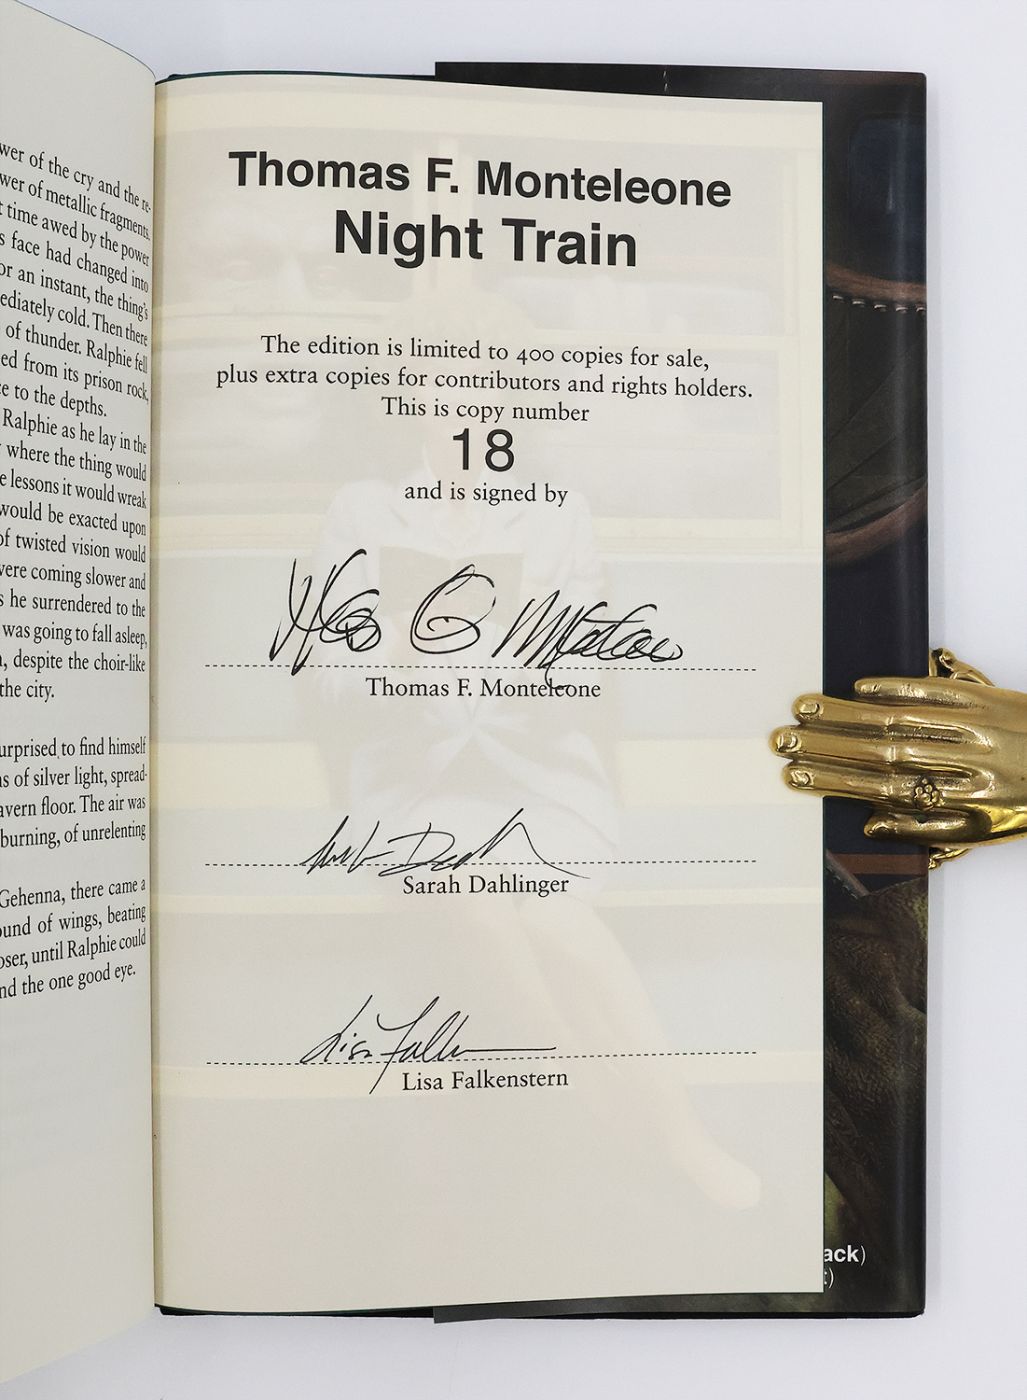 wer of the cry and the re-
wer of metallic fragments,
t time awed by the power
s face had changed into
or an instant, the thing's
ediately cold. Then there
of thunder. Ralphie fell
ed from its prison rock,
e to the depths.
Ralphie as he lay in the
where the thing would
e lessons it would wreak
would be exacted upon
of twisted vision would
were coming slower and
s he surrendered to the
was going to fall asleep,
, despite the choir-like
the city.
urprised to find himself
ns of silver light, spread-
avern floor. The air was
burning, of unrelenting
Gehenna, there came a
ound of wings, beating
oser, until Ralphie could
nd the one good eye.
Thomas F. Monteleone
Night Train
The edition is limited to 400 copies for sale,
plus extra copies for contributors and rights holders.
This is copy number
18
and is signed by
Thomas F. Monteleone
Sarah Dahlinger
Lisa Falkenstern
ack)
:)